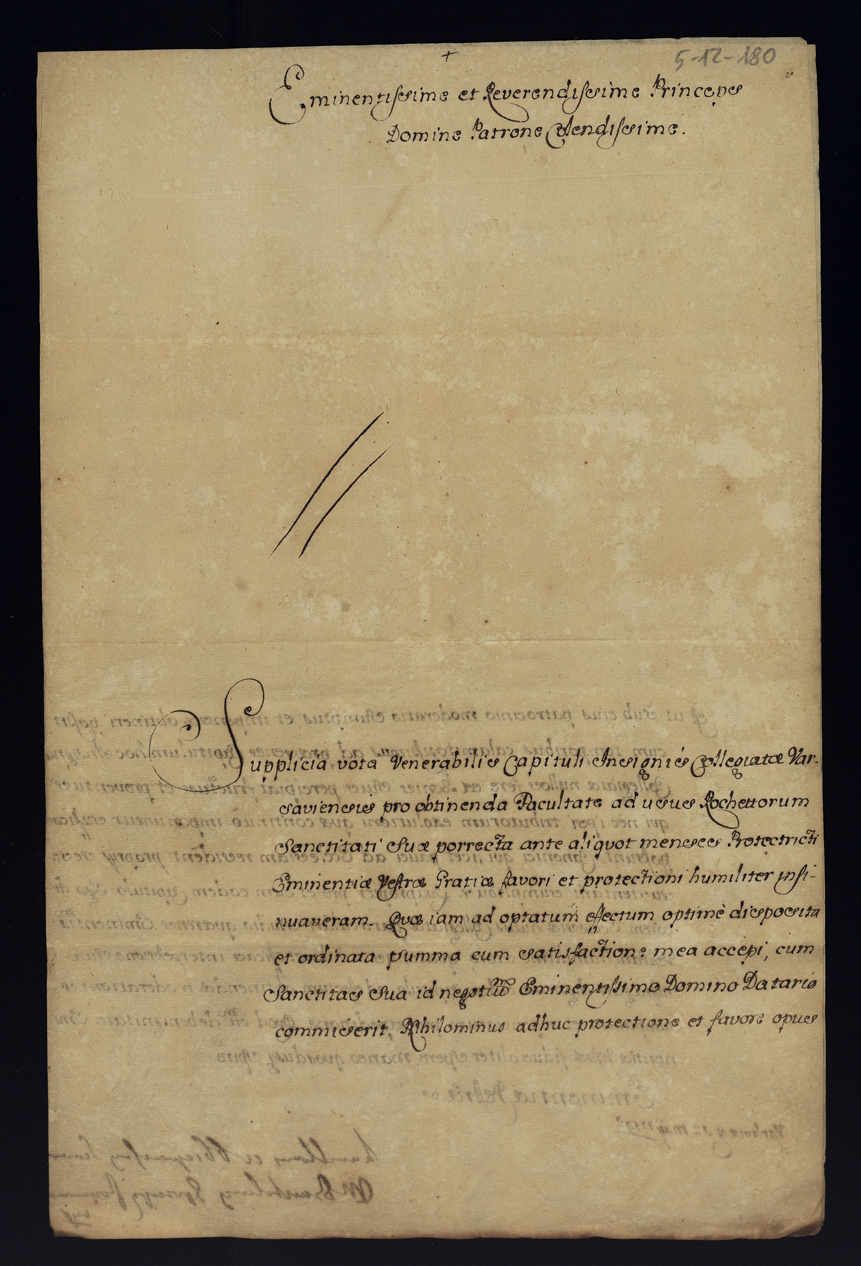 +
5-12-180
Eminentissime et Reverendissime Princeps
Domine Patrone Colendissime.
Supplicia vota Venerabilis Capituli Insignis Collegiatæ Var-
saviensis pro obtinenda Facultate ad usus Rochettorum
Sanctitati Suæ porrecta ante aliquot menses Protectrici
Eminentiæ Vestræ Gratiæ favori et protectioni humiliter insi-
nuaveram. Quæ iam ad optatum effectum optimè disposita
et ordinata summa cum satisfactione mea accepi, cum
Sanctitas Sua id negotium Eminentissimo Domino Datario
commiserit. Nihilominus adhuc protectione et favore opus